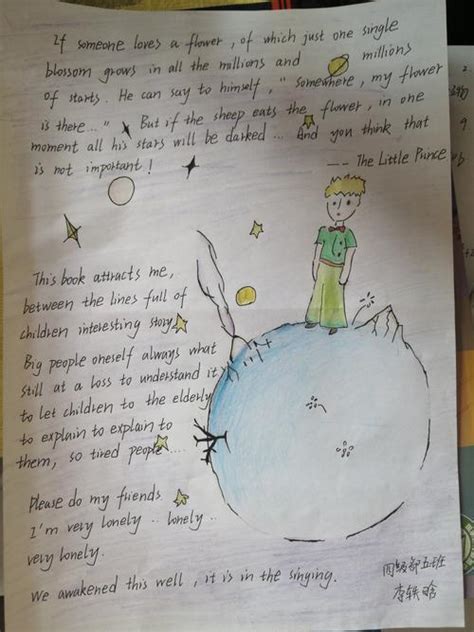 If someone loves a flower, of which just one single
blossom grows in all the millions and millions
of starts. He can say to himself, " Somewhere, my flower
is there..." But if the sheep eats the flower, in one
moment all his stars will be darked... And you think that
is not important!
-- The Little Prince
This book attracts me,
between the lines full of
children interesting story.
Big people oneself always what
still at a loss to understand it,
to let children to the elderly
to explain to explain to
them, so tired people....
Please do my friends.
I'm very lonely .. lonely..
very lonely.
We awakened this well, it is in the singing.
四级部五班
李轶晗